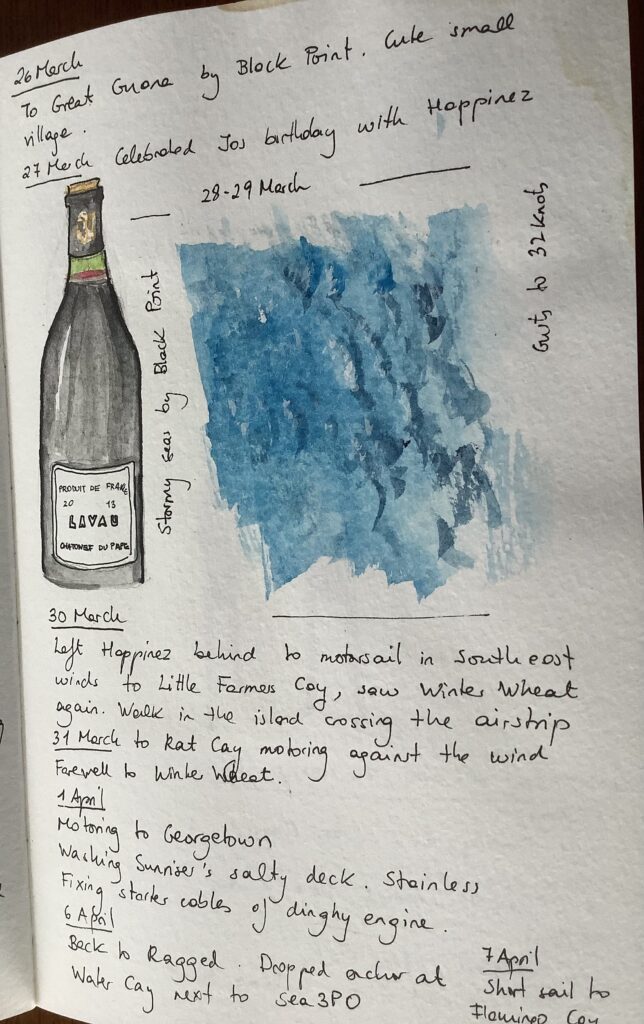 26 March
To Great Guana by Black Point. Cute small
village.
27 March Celebrated Jos birthday with Happinez
28-29 March
Stormy seas by Black Point
Gusts to 32 knots
PRODUIT DE FRANCE
20 13
LAVAU
CHATONEF DU PAPE
30 March
Left Happinez behind to motorsail in southeast
winds to Little Farmers Cay, saw Winter Wheat
again. Walk in the island crossing the airstrip
31 March to Rat Cay motoring against the wind
Farewell to Winter Wheat.
1 April
Motoring to Georgetown
Washing Sunriser's salty deck. Stainless
Fixing starter cables of dinghy engine.
6 April
Back to Ragged. Dropped anchor at
Water Cay next to Sea3PO
7 April
Short sail to
Flamingo Cay